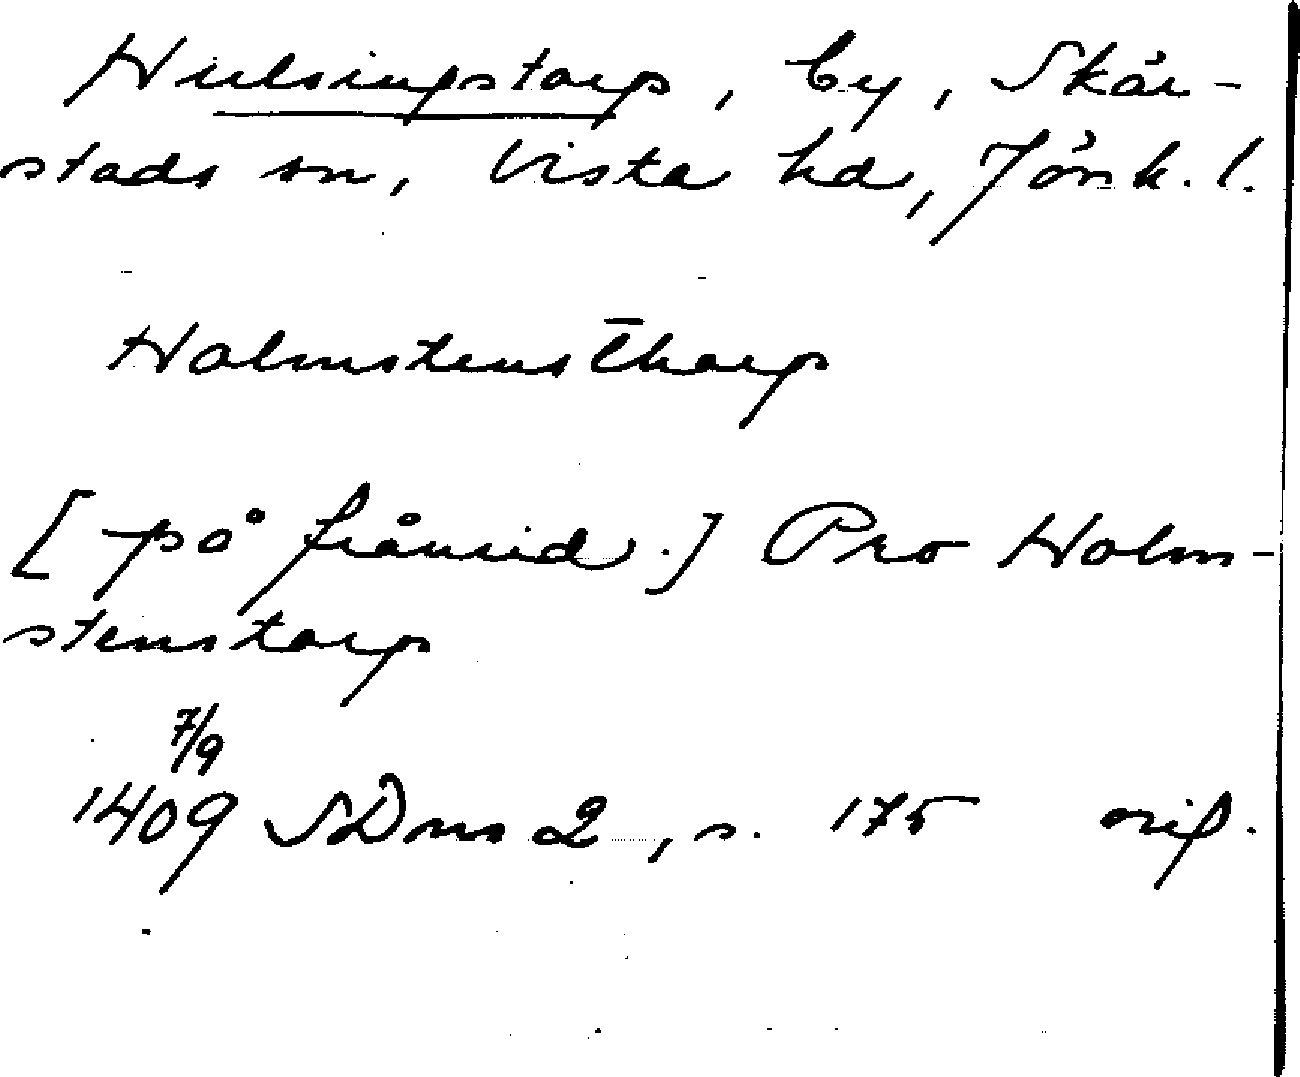 Hulsingstorp, by, Skär-
stads sn, Vista hd, Jönk. l.
Holmstens t̄horp
[på frånsid.] Pro Holm-
stenstorp
7/9
1409 SDns 2, s. 175 orig.